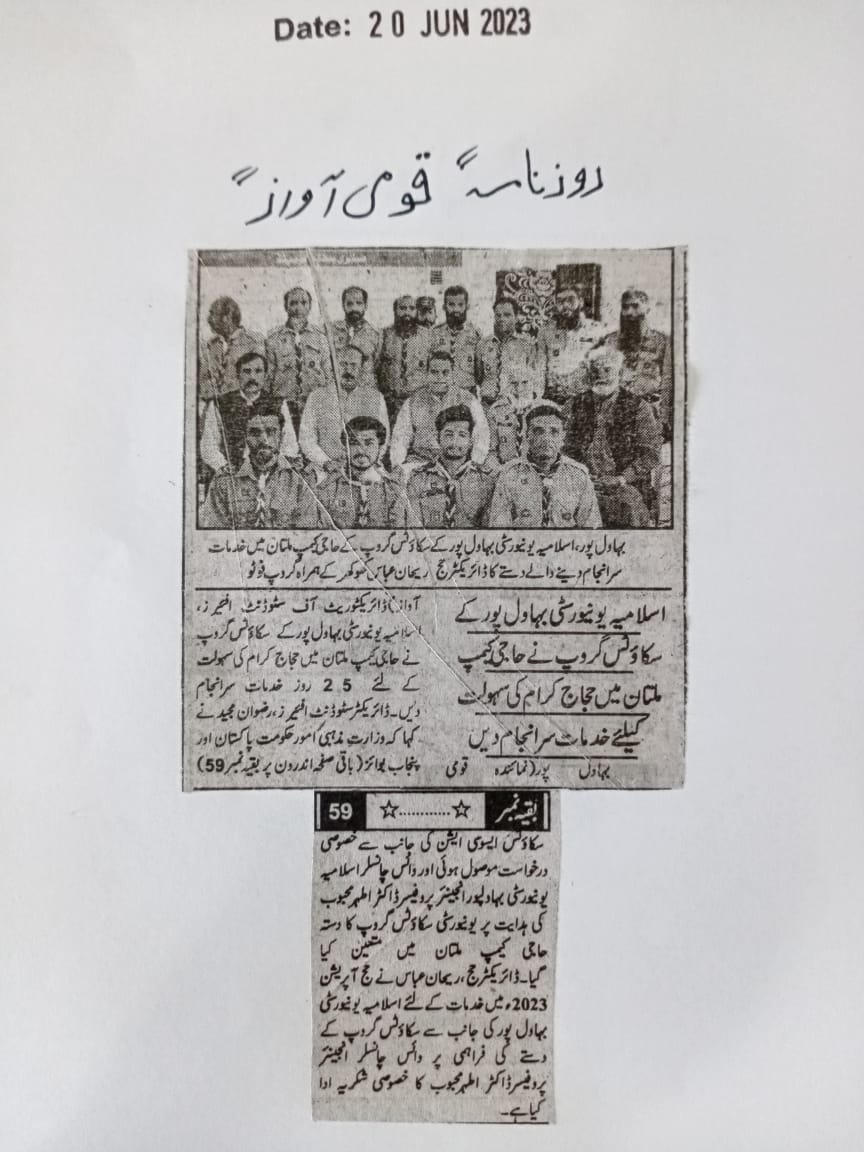 Date: 20 JUN 2023
روزنامہ "قومی آواز"
بہاول پور، اسلامیہ یونیورسٹی بہاول پور کے سکاؤٹس گروپ کے حاجی کیمپ ملتان میں خدمات
سرانجام دینے والے دستے کا ڈائریکٹر حج ریحان عباس کھوکھر کے ہمراہ گروپ فوٹو
اسلامیہ یونیورسٹی بہاول پور کے
سکاؤٹس گروپ نے حاجی کیمپ
ملتان میں حجاج کرام کی سہولت
کیلئے خدمات سرانجام دیں
بہاول پور (نمائندہ قومی
آواز) ڈائریکٹوریٹ آف سٹوڈنٹ افئیرز،
اسلامیہ یونیورسٹی بہاول پور کے سکاؤٹس گروپ
نے حاجی کیمپ ملتان میں حجاج کرام کی سہولت
کے لئے 25 روز خدمات سرانجام
دیں۔ ڈائریکٹر سٹوڈنٹ افئیرز، رضوان مجید نے
کہا کہ وزارت مذہبی امور حکومت پاکستان اور
پنجاب بوائز (باقی صفحہ اندرون پر بقیہ نمبر 59)
بقیہ نمبر ☆...........☆ 59
سکاؤٹس ایسوسی ایشن کی جانب سے خصوصی
درخواست موصول ہوئی اور وائس چانسلر اسلامیہ
یونیورسٹی بہاولپور انجینئر پروفیسر ڈاکٹر اطہر محبوب
کی ہدایت پر یونیورسٹی سکاؤٹس گروپ کا دستہ
حاجی کیمپ ملتان میں متعین کیا
گیا۔ ڈائریکٹر حج، ریحان عباس نے حج آپریشن
2023ء میں خدمات کے لئے اسلامیہ یونیورسٹی
بہاول پور کی جانب سے سکاؤٹس گروپ کے
دستے کی فراہمی پر وائس چانسلر انجینئر
پروفیسر ڈاکٹر اطہر محبوب کا خصوصی شکریہ ادا
کیا ہے۔